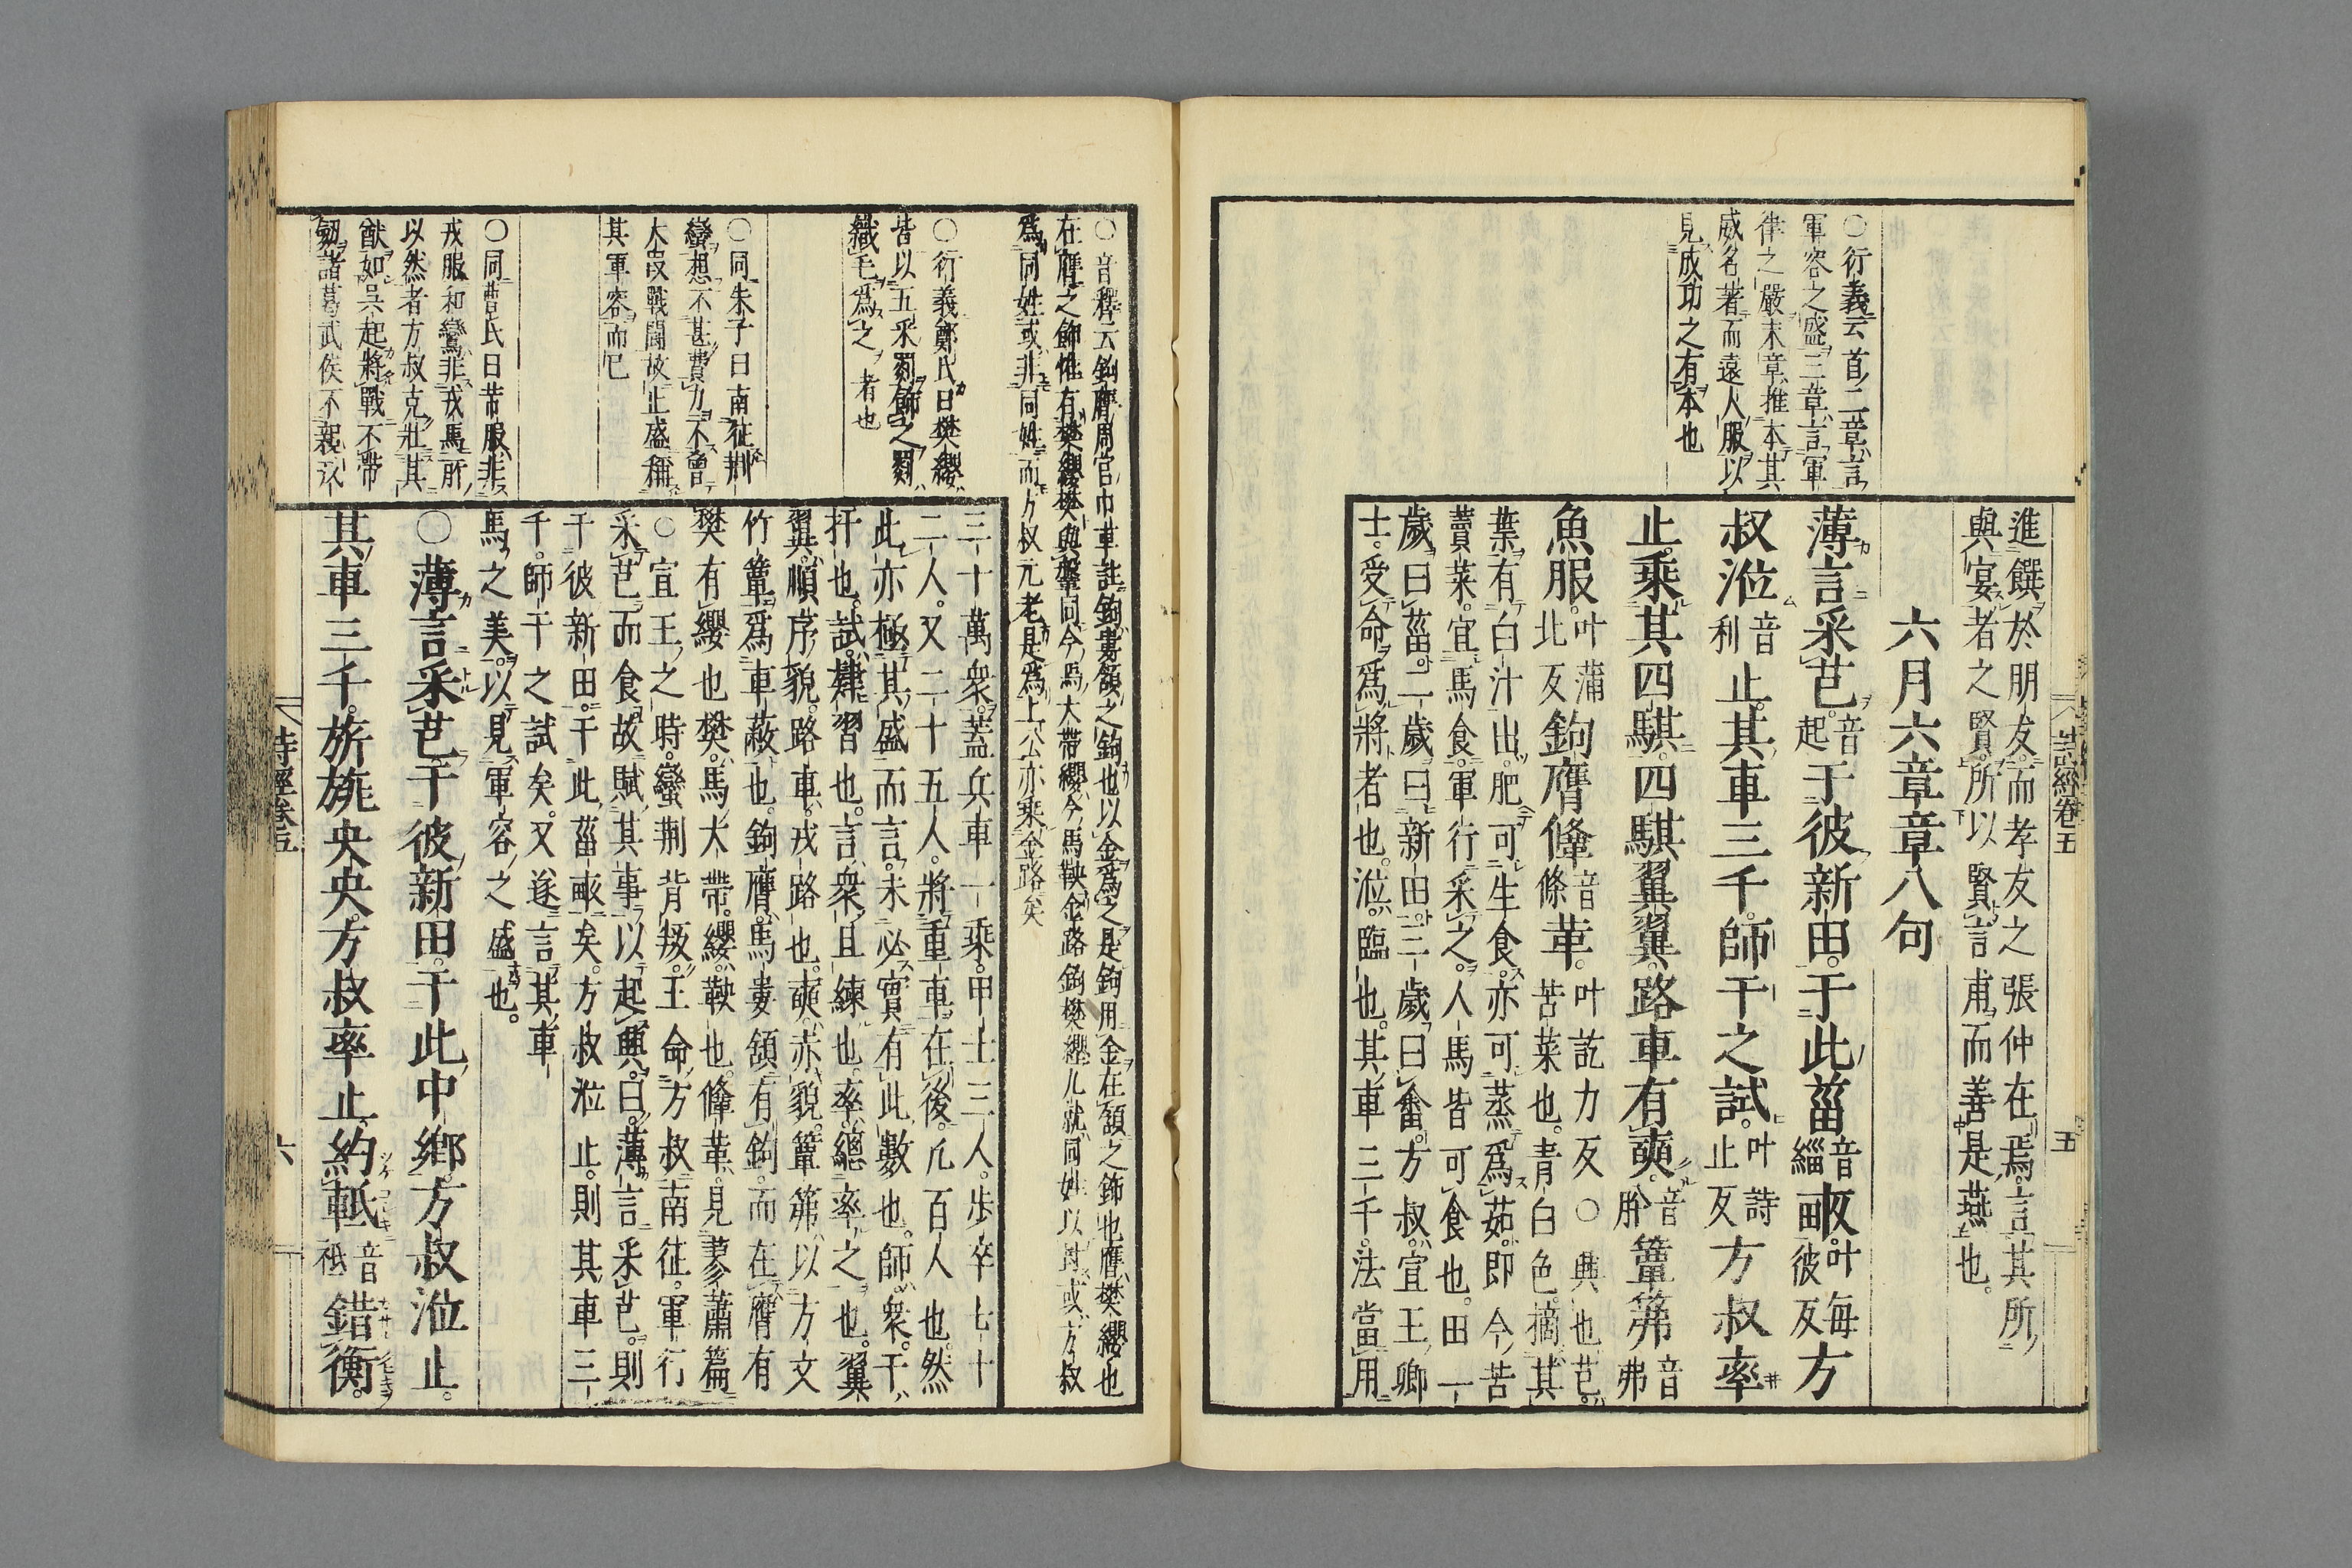 詩經卷五
五
進饌於朋友而孝友之張仲在焉言其所
與宴者之賢所以賢吉甫而善是燕也
六月六章章八句
薄言采芑音起于彼新田于此菑音緇畝叶每彼反方
叔涖音利止其車三千師干之試叶詩止反方叔率
止乘其四騏四騏翼翼路車有奭音肹簟笰音弗
魚服叶蒲北反鉤膺鞗音條革叶訖力反○興也芑
苦菜也青白色摘其
葉有白汁出肥可生食亦可蒸爲茹即今苦
蕒菜宜馬食軍行采之人馬皆可食也田一
歲曰菑二歲曰新田三歲曰畬方叔宣王卿
士受命爲將者也涖臨也其車三千法當用
○衍義云首二章言
軍容之盛三章言軍
律之嚴末章推本其
威名著而遠人服以
見成功之有本也
○音釋云鉤膺周官巾車註鉤婁頷之鉤也以金爲之是鉤用金在頷之飾也膺樊纓也
在膺之飾惟有樊纓樊與鞶同今馬大帶纓今馬鞅金路鉤樊纓九就同姓以封或方叔
爲同姓或非同姓而方叔元老是爲上公亦乘金路矣
三十萬衆蓋兵車一乘甲士三人步卒七十
二人又二十五人將重車在後凡百人也然
此亦極其盛而言未必實有此數也師衆干
扞也試肄習也言衆且練也率總率之也翼
翼順序貌路車戎路也奭赤貌簟笰以方文
竹簟爲車蔽也鉤膺馬婁頷有鉤而在膺有
樊有纓也樊馬大帶纓鞅也鞗革見蓼蕭篇
○宣王之時蠻荆背叛王命方叔南征軍行
采芑而食故賦其事以起興曰薄言采芑則
于彼新田于此菑畝矣方叔涖止則其車三
千師干之試矣又遂言其車
馬之美以見軍容之盛也
○薄言采芑于彼新田于此中鄉方叔涖止
其車三千旂旐央央方叔率止約軧音祗錯衡
○衍義鄭氏曰樊纓
皆以五采罽飾之罽
織毛爲之者也
○同朱子曰南征荆
蠻想不甚費力不曾
大叚戰鬪故止盛稱
其軍容而已
○同曹氏曰韋服非
戎服和鸞非戎馬所
以然者方叔克壯其
猷如吳起將戰不帶
劒諸葛武侯不親汲
詩經卷五
六